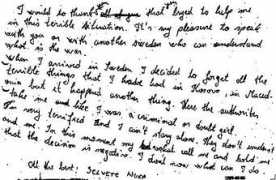 I would to thank that tryed to help me
in this terrible situation. It's my pleasure to speak
with you or with another sweden who can understand
what is the war.
When I arrived in Sweden, I decided to forget all the
terrible things that I had in Kosovo, in Maced.
but it happend another thing. Here the authorities
take me like I was a criminal or girl.
I'm very terrified and I can't stay alone. They don't
and me. In this moment my call me and told me
that the decision is negative. I don't now what can I do.
All the best: